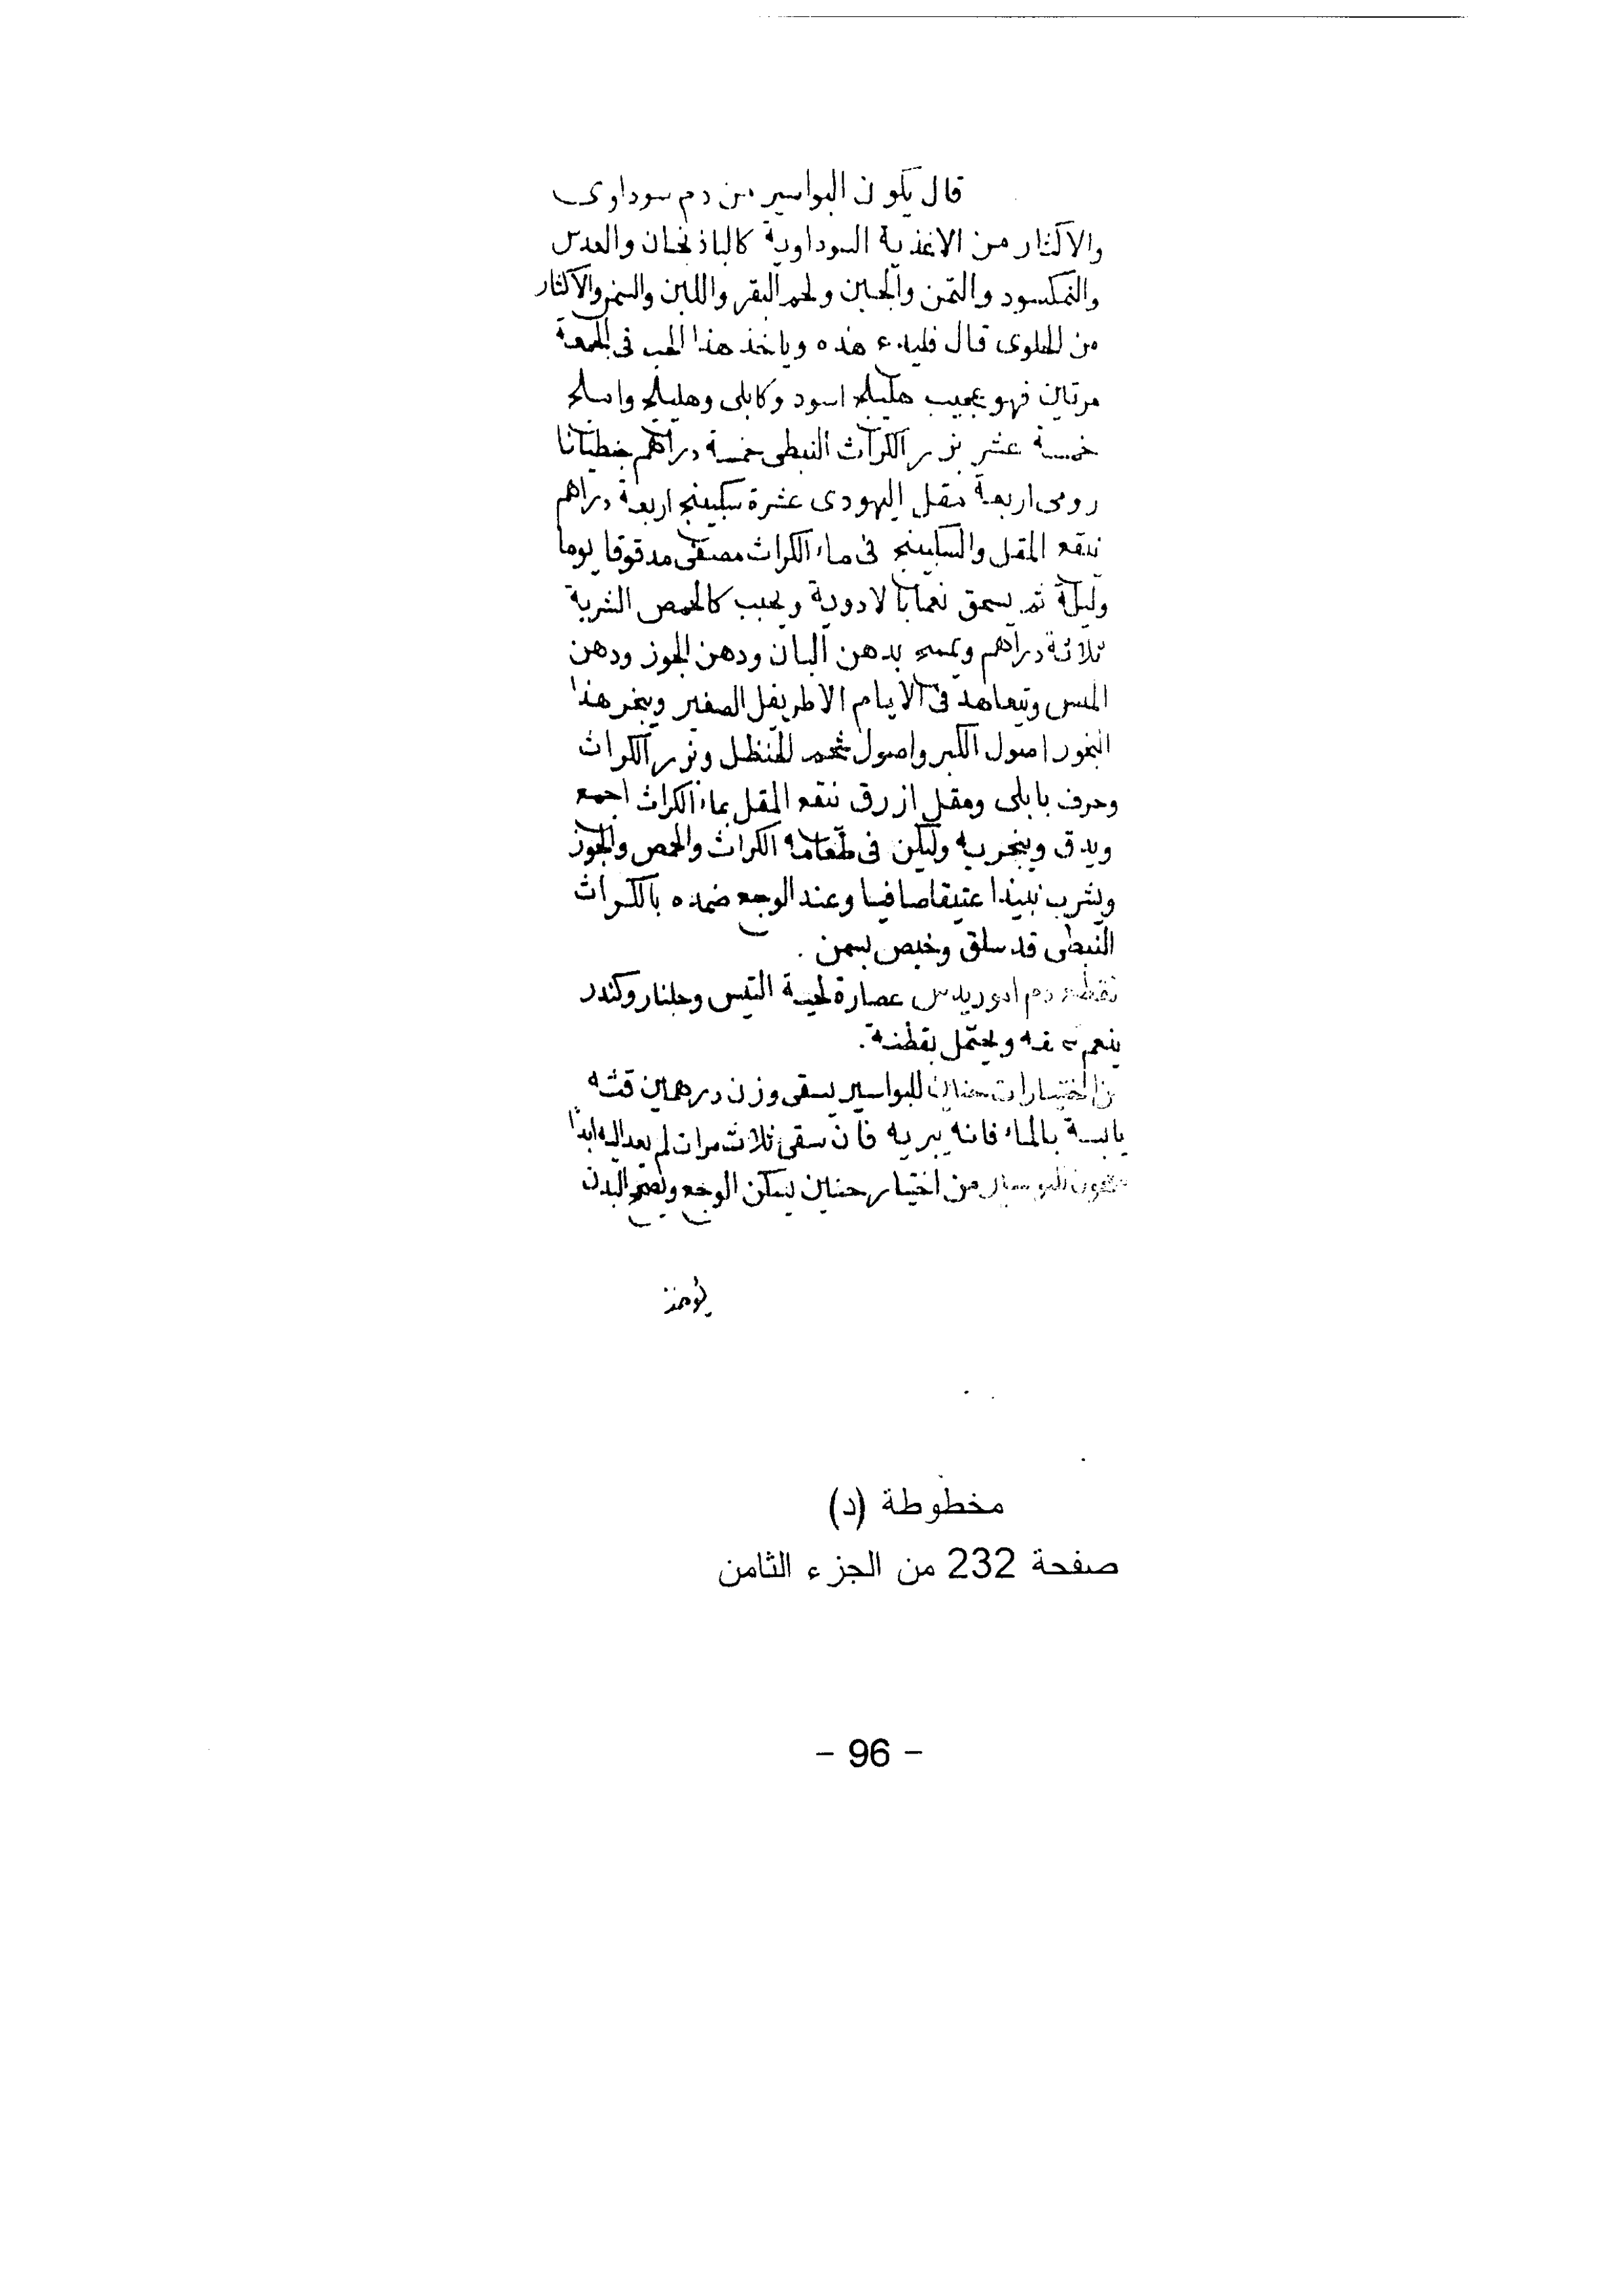 قال يكون البواسير من دم سوداوى
والاكثار من الاغذية السوداوية كالباذنجان والعدس
والنمكسود والتمن والجبن ولحم البقر واللبن والسمن والاكثار
من الحلوى قال فليدع هذه وياخذ هذا الحب فى الجمعة
مرتين فهو عجيب هليلج اسود وكابلى وهليلج واملج
خمسة عشر بزر الكراث النبطى خمسة دراهم جنطيانا
رومى اربعة مقل اليهودى عشرة سكبينج اربعة دراهم
ينقع المقل والسكبينج فى ماء الكراث مصفى مدقوقا يوما
وليلة ثم يسحق نعما بالادوية ويحبب كالحمص الشربة
ثلاثة دراهم ويمسح بدهن البان ودهن الجوز ودهن
المس وتتعاهد فى الايام الاطريفل الصغير ويبخر هذا
البخور اصول الكبر واصول شحم الحنظل وبزر الكراث
وحرف بابلى ومقل ازرق ينقع المقل بماء الكراث اجمع
ويدق ويبخر به وليكن فى طعامه الكراث والحمص والجوز
ويشرب نبيذا عتيقا صافيا وعند الوجع ضمده بالكراث
النبطى قد سلق وخبص بسمن .
دم عصارة لحية التيس وجلنار وكندر
ينعم سحقه ويحتمل بقطنة .
من اختيارات حنين للبواسير يسقى وزن درهمين قثه
يابسة بالماء فانه يبريه فان سقى ثلاث مرات لم يعد اليه ابدا
من اختيار حنين يسكن الوجع ويصح البدن
يوخذ
مخطوطة (د)
صفحة 232 من الجزء الثامن
- 96 -